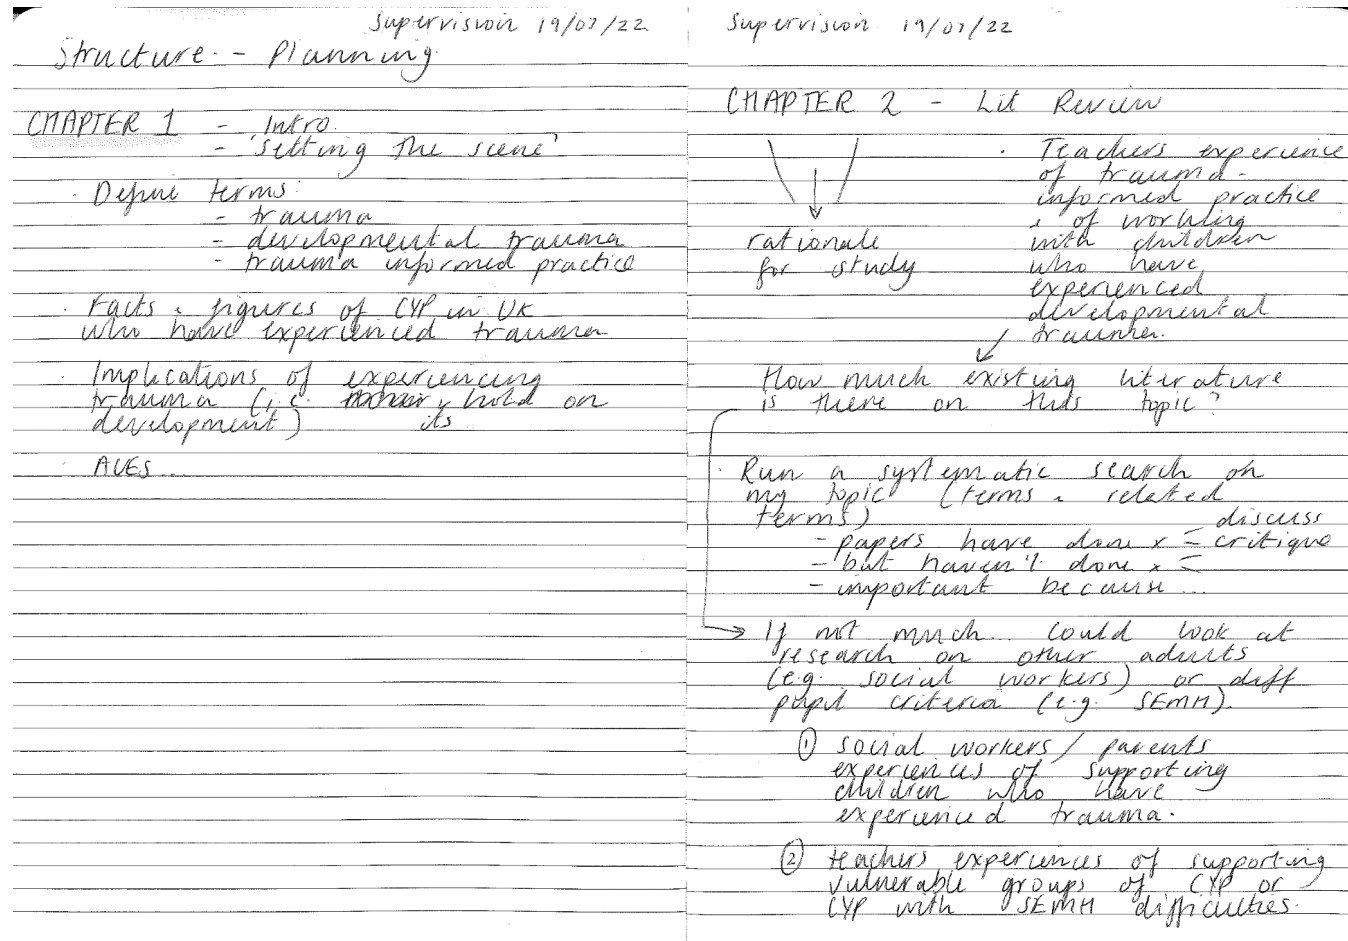 Supervision 19/07/22
Structure - Planning
CHAPTER 1 - Intro.
- 'Setting the scene'
· Define terms:
- trauma
- developmental trauma
- trauma informed practice
· Facts & figures of CYP in UK
who have experienced trauma
· Implications of experiencing
trauma (i.e. hold on
development) its
· ACES...
Supervision 19/07/22
CHAPTER 2 - Lit Review
rationale
for study
· Teachers experience
of trauma-
informed practice
& of working
with children
who have
experienced
developmental
trauma.
How much existing literature
is there on this topic?
· Run a systematic search on
my topic (terms & related
terms)
discuss
- papers have done x = critique
- but haven't done x =
- important because...
If not much... could look at
research on other adults
(e.g. social workers) or diff
pupil criteria (e.g. SEMH).
① social workers / parents
experiences of supporting
children who have
experienced trauma.
② teachers experiences of supporting
vulnerable groups of CYP or
CYP with SEMH difficulties.